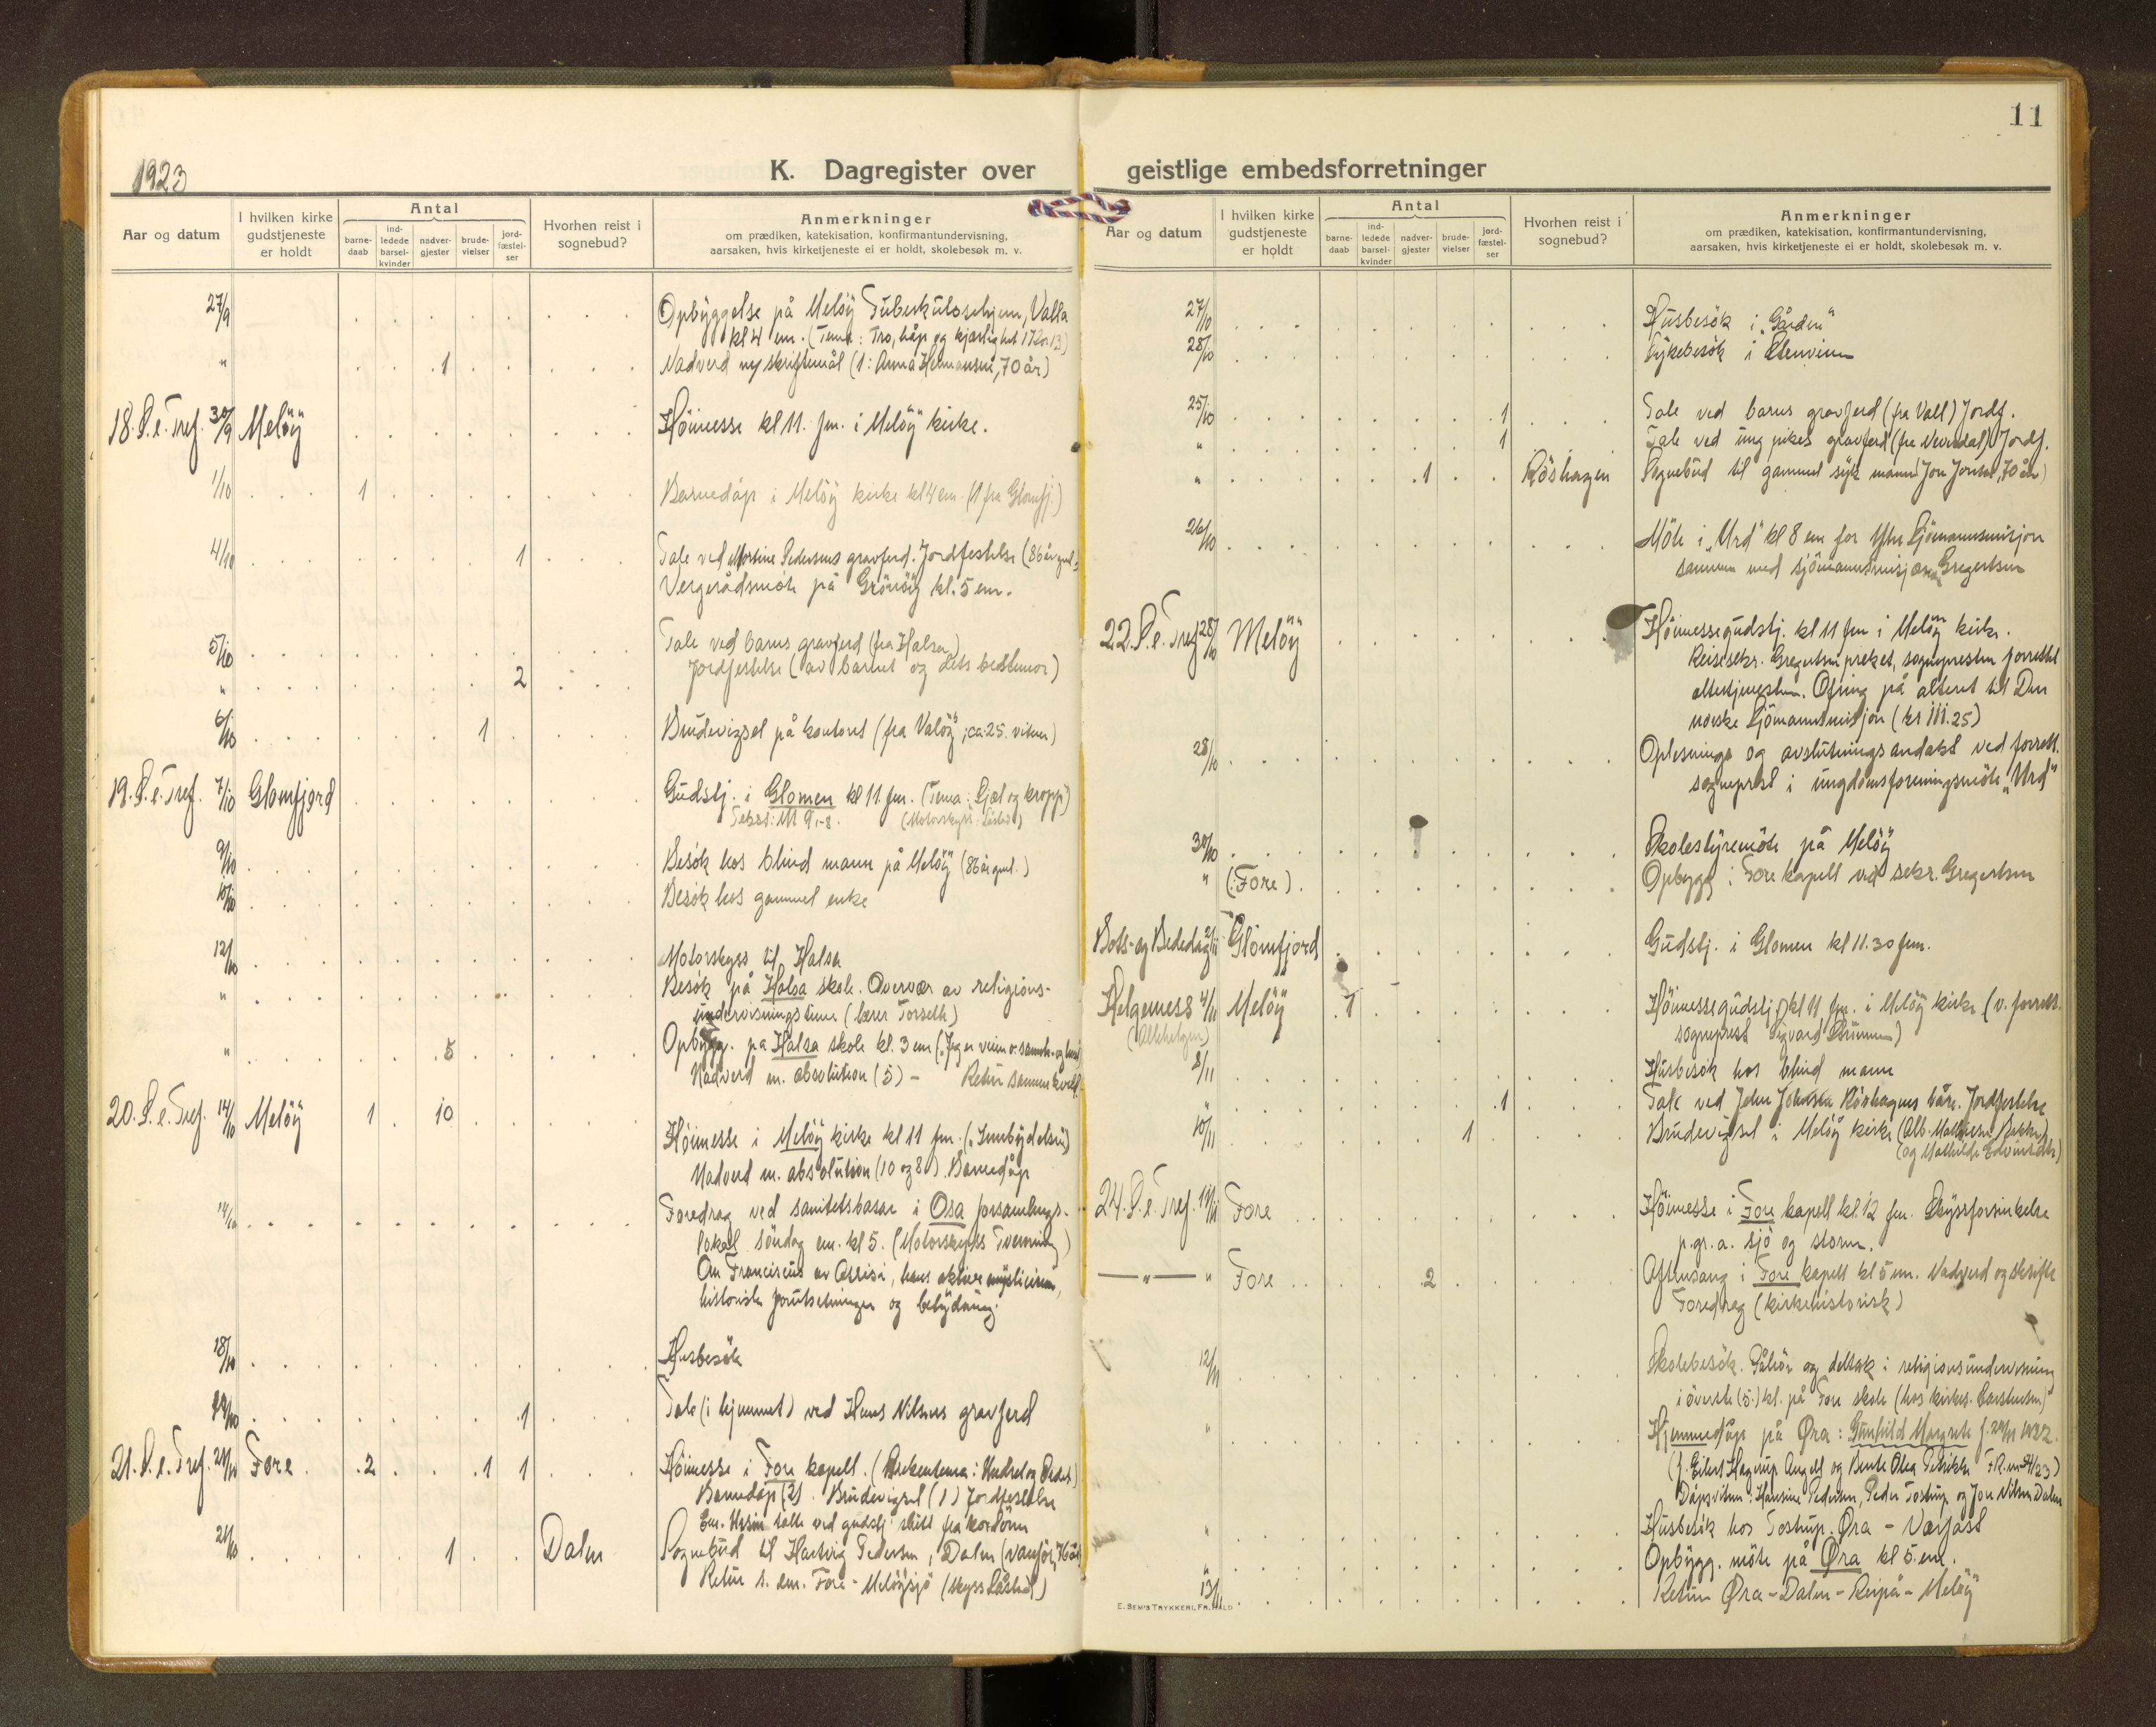 1923
K. Dagregister over
Aar og datum
I hvilken kirke gudstjeneste er holdt
Antal
barne-daab
ind-ledede barsel-kvinder
nadver-gjester
brude-vielser
jord-fæstel-ser
Hvorhen reist i sognebud?
Anmerkninger
om prædiken, katekisation, konfirmantundervisning,
aarsaken, hvis kirketjeneste ei er holdt, skolebesøk m. v.
27/9 Opbyggelse på Meløÿ Tuberkulosehjem, Valla
kl 4 em. (Tema: Tro, håp og kjærlighet 1 Kor. 13)
" 1 Nadverd m/ skriftemål (1: Anna Hermansen, 70 år)
18. S. e. Tref. 30/9 Meløÿ Höimesse kl 11. fm. i Melöÿ kirke.
1/10 1 Barnedåp i Melöÿ kirke kl 4 em. (1 fra Glomfj.)
4/10 1 Tale ved Martine Pedersens gravferd. Jordfestelse (86 år gml.)
Vergerådsmöte på Grönöÿ kl. 5 em.
5/10 Tale ved barns gravferd (fra Halsa)
" 2 Jordfestelse (av barnet og dets bedstemor)
6/10 1 Brudevigsel på kontoret (fra Valöÿ; ca. 25. vitner)
19. S. e. Tref. 7/10 Glomfjord Gudstj. i Glomen kl 11 fm. (Tema: Sjæl og kropp)
Tekst: Mt 9, 1-8. (Motorskyss:
9/10 Besök hos blind mann på Melöÿ (86 år gml.)
10/10 Besök hos gammel enke
12/10 Motorskyss til Halsa
" Besök på Halsa skole. Overvær av religions-
undervisningstime (lærer Torseth)
" 5 Opbygg. på Halsa skole kl. 3 em (
Nadverd m. absolution (5) - Retur samme kveld
20. S. e. Tref. 14/10 Melöÿ 1 10 Höimesse i Melöÿ kirke kl 11 fm. ("Innbydelsen")
Nadverd m. absolution (10 og 8). Barnedåp
14/10 Foredrag ved sanitetsbasar i Osa forsamlings-
lokal söndag em. kl 5. (Motorskyss
Om Franciscus av Assisi, hans aktive mysticisme,
historiske forutsetninger og betydning.
18/10 Husbesök
19/10 1 Tale (i hjemmet) ved Hans Nilsens gravferd
21. S. e. Tref. 21/10 Fore 2 1 1 Höimesse i Fore kapell. (
Barnedåp (2). Brudevigsel (1) Jordfestelse
Em. talte ved gudstj.
21/10 1 Dalen Sognebud til Hartvig Pedersen, Dalen (
Retur s. em. Fore - Melöysjö (skyss
11
geistlige embedsforretninger
Aar og datum
I hvilken kirke gudstjeneste er holdt
Antal
barne-daab
ind-ledede barsel-kvinder
nadver-gjester
brude-vielser
jord-fæstel-ser
Hvorhen reist i sognebud?
Anmerkninger
om prædiken, katekisation, konfirmantundervisning,
aarsaken, hvis kirketjeneste ei er holdt, skolebesøk m. v.
27/10 Husbesök i "Gården"
28/10 Sykebesök i
25/10 1 Tale ved barns gravferd (fra Vall) Jordf.
" 1 Tale ved ung pikes gravferd (fra Neverdal) Jordf.
" 1 Röshagen Sognebud til gammel syk mann (Jon Jensen, 70 år)
26/10 Möte i "Urd" kl 8 em for Sjömannsmisjon
sammen med sjömannsmisjonær Gregertsen
22. S. e. Tref 28/10 Melöÿ Höimessegudstj. kl 11 fm i Melöÿ kirke.
Reisesekr. Gregertsen preket, sognepresten forrettet
altertjenesten. Ofring på alteret til Den
norske Sjömannsmisjon (kr 111.25)
28/10 Oplesnings og avslutningsandakt ved forrett.
sogneprest i ungdomsforeningsmöte "Urd"
30/10 Skolestyremöte på Melöÿ
" (Fore) Opbygg i Fore kapell ved sekr. Gregertsen
Bots- og Bededag 2/11 Glomfjord Gudstj. i Glomen kl 11.30 fm.
Helgemess 4/11 Melöÿ 1 Höimessegudstj. kl 11 fm. i Melöÿ kirke (v. forrett.
(Allehelgen) sogneprest Sigvard
8/11 Husbesök hos blind mann
" 1 Tale ved Röshagens båre. Jordfestelse
10/11 1 Brudevigsel i Melöÿ kirke (Alb. Mathisen
(og Mathilde
24. S. e. Tref. 11/11 Fore Höimesse i Fore kapell kl. 12 fm. Skyssforsinkelse
p. gr. a. sjö og storm.
—"— " Fore 2 Aftensang i Fore kapell kl 5 em. Nadverd og skrifte
Foredrag (kirkehistorisk)
12/11 Skolebesök. Påhör og deltak i religionsundervisning
i överste (5.) kl. på Fore skole (hos kirkes.
" Hjemmedåp på Øra: Gunhild Margrete f. 1922.
(f. Eilert Hagerup Angell og Bente Olea Petrikke
Dåpsvitner: Hansine Pedersen, Peder Tostrup og Jon Nilsen Dalen
" Husbesök hos Tostrup. Øra -
" Opbygg. möte på Øra kl 5. em.
13/11 Retur Øra - Dalen - Reipå - Melöÿ
E. SEM'S TRYKKERI, FR.HALD